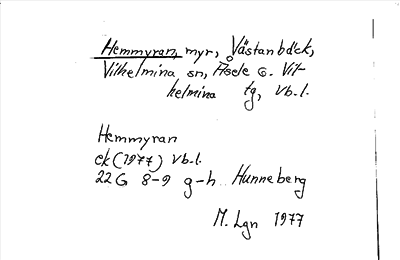 Hemmyran, myr, Västanbäck,
Vilhelmina sn, Åsele o. Vil-
helmina tg, Vb.l.
Hemmyran
ek (1977) Vb.l.
22G 8-9 g-h Hunneberg
M. Lgn 1977